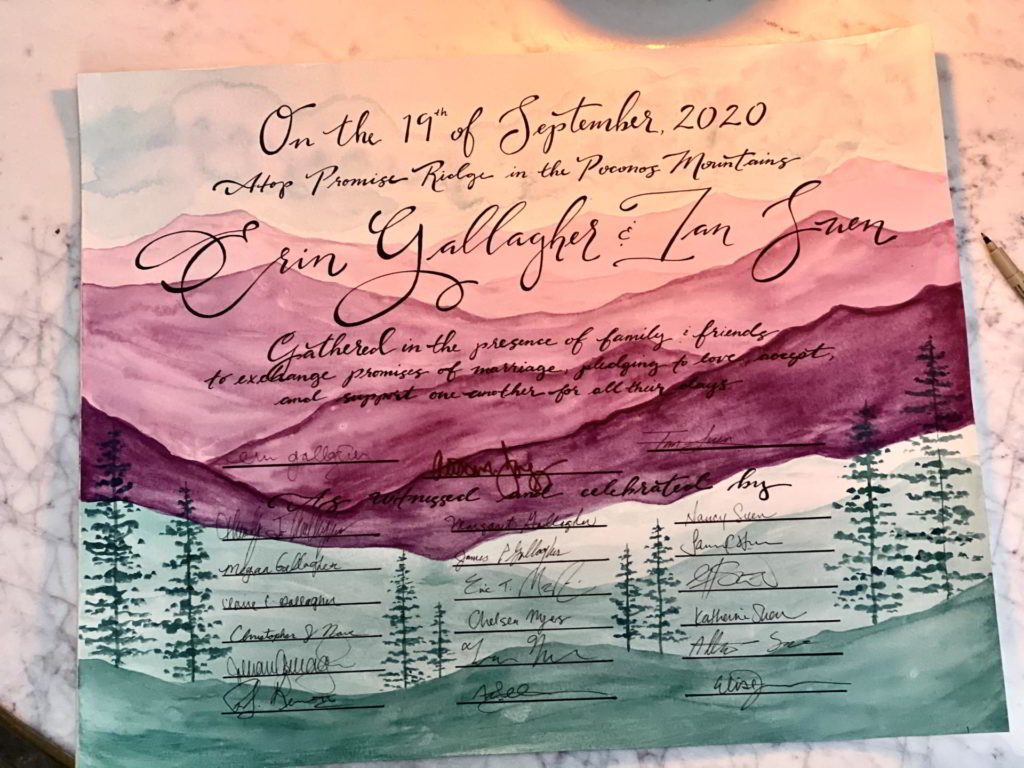 On the 19th of September, 2020
Atop Promise Ridge in the Poconos Mountains
Erin Gallagher & Ian Suen
Gathered in the presence of family & friends
to exchange promises of marriage, pledging to love, accept,
and support one another for all their days
Erin Gallagher Ian Suen
As witnessed and celebrated by
Margaret Gallagher Nancy Suen
Megan Gallagher James P Gallagher
Eric T.
Gallagher Chelsea Myers Katherine Suen
Christopher J